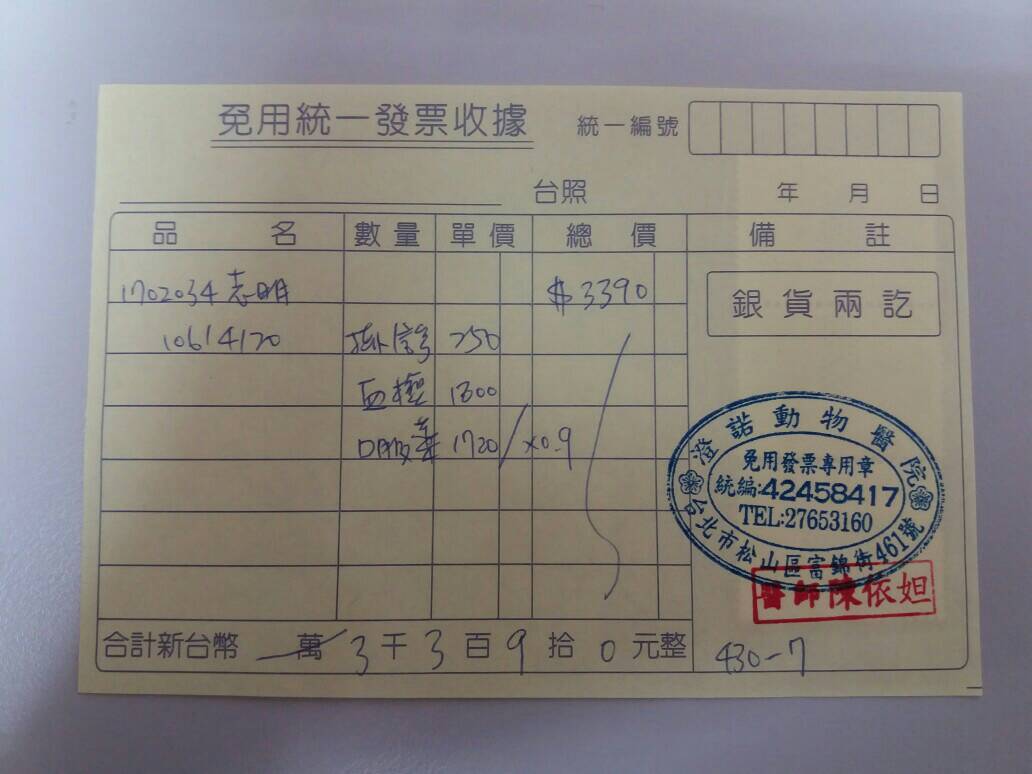 免用統一發票收據 統一編號
台照 年 月 日
品名 數量 單價 總價 備註
1702034 志明 $3390
銀貨兩訖
10614120 掛號 250
血檢 1800
口服藥 1720 / ×0.9
澄諾動物醫院
免用發票專用章
統編:42458417
TEL:27653160
台北市松山區富錦街461號
醫師陳依妲
合計新台幣 萬 3 千 3 百 9 拾 0 元整
430-7